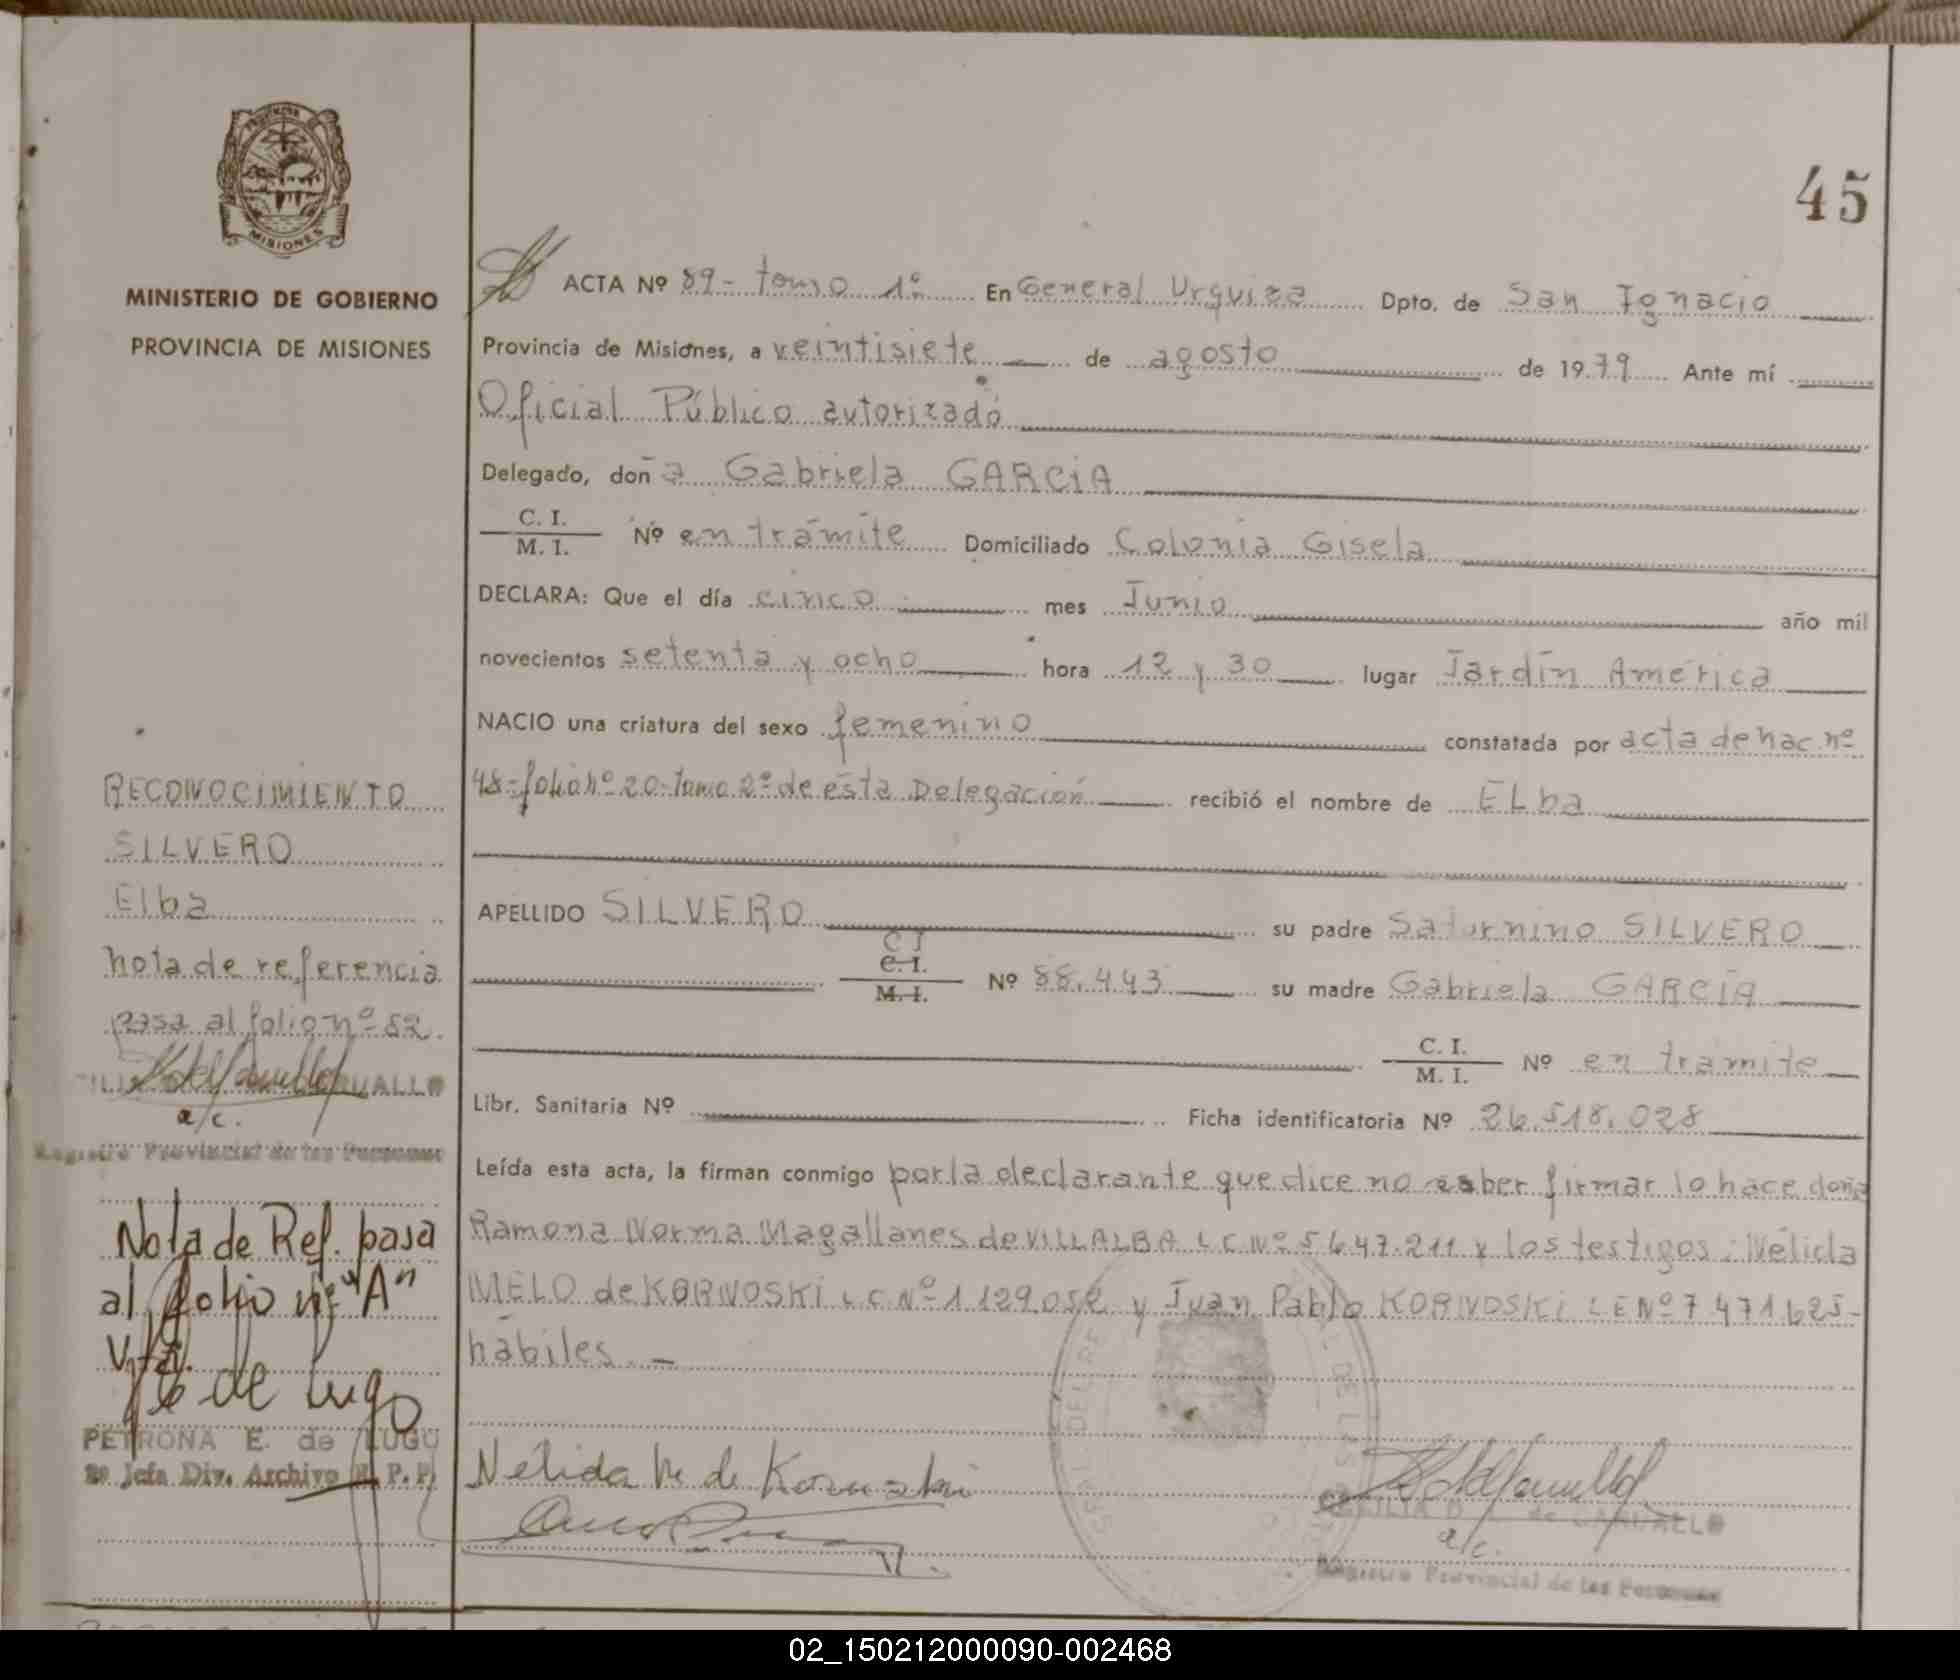 45
MISIONES
MINISTERIO DE GOBIERNO
PROVINCIA DE MISIONES
ACTA Nº 89 - tomo 1º En General Urquiza Dpto. de San Ignacio
Provincia de Misiones, a veintisiete de agosto de 1979 Ante mí
Oficial Público autorizado
Delegado, doña Gabriela GARCIA
C. I.
M. I. Nº en trámite Domiciliado Colonia Gisela
DECLARA: Que el día cinco mes Junio año mil
novecientos setenta y ocho hora 12 y 30 lugar Jardín América
NACIO una criatura del sexo femenino constatada por acta de nac nº
48 - folio nº 20 - tomo 2º de esta Delegación recibió el nombre de ELba
APELLIDO SILVERO su padre Saturnino SILVERO
C I
C. I.
M. I. Nº 88.443 su madre Gabriela GARCÍA
C. I.
M. I. Nº en trámite
Libr. Sanitaria Nº Ficha identificatoria Nº 26.518.028
Leída esta acta, la firman conmigo por la declarante que dice no saber firmar lo hace doña
Ramona Norma Magallanes de VILLALBA L C Nº 5647.211 y los testigos: Nélida
MELO de KORNOSKI L C Nº 1 129 052 y Juan Pablo KORNOSKI L E Nº 7 471.625-
hábiles. –
Nélida M. de Kornoski
a/c.
Registro Provincial de las Personas
RECONOCIMIENTO
SILVERO
Elba
nota de referencia
pasa al folio nº 52.
a/c.
Registro Provincial de las Personas
Nota de Ref. pasa
al folio nº "A"
Vta.
de Lugo
PETRONA E. de LUGO
2º Jefa Div. Archivo R. P. P.
02_150212000090-002468